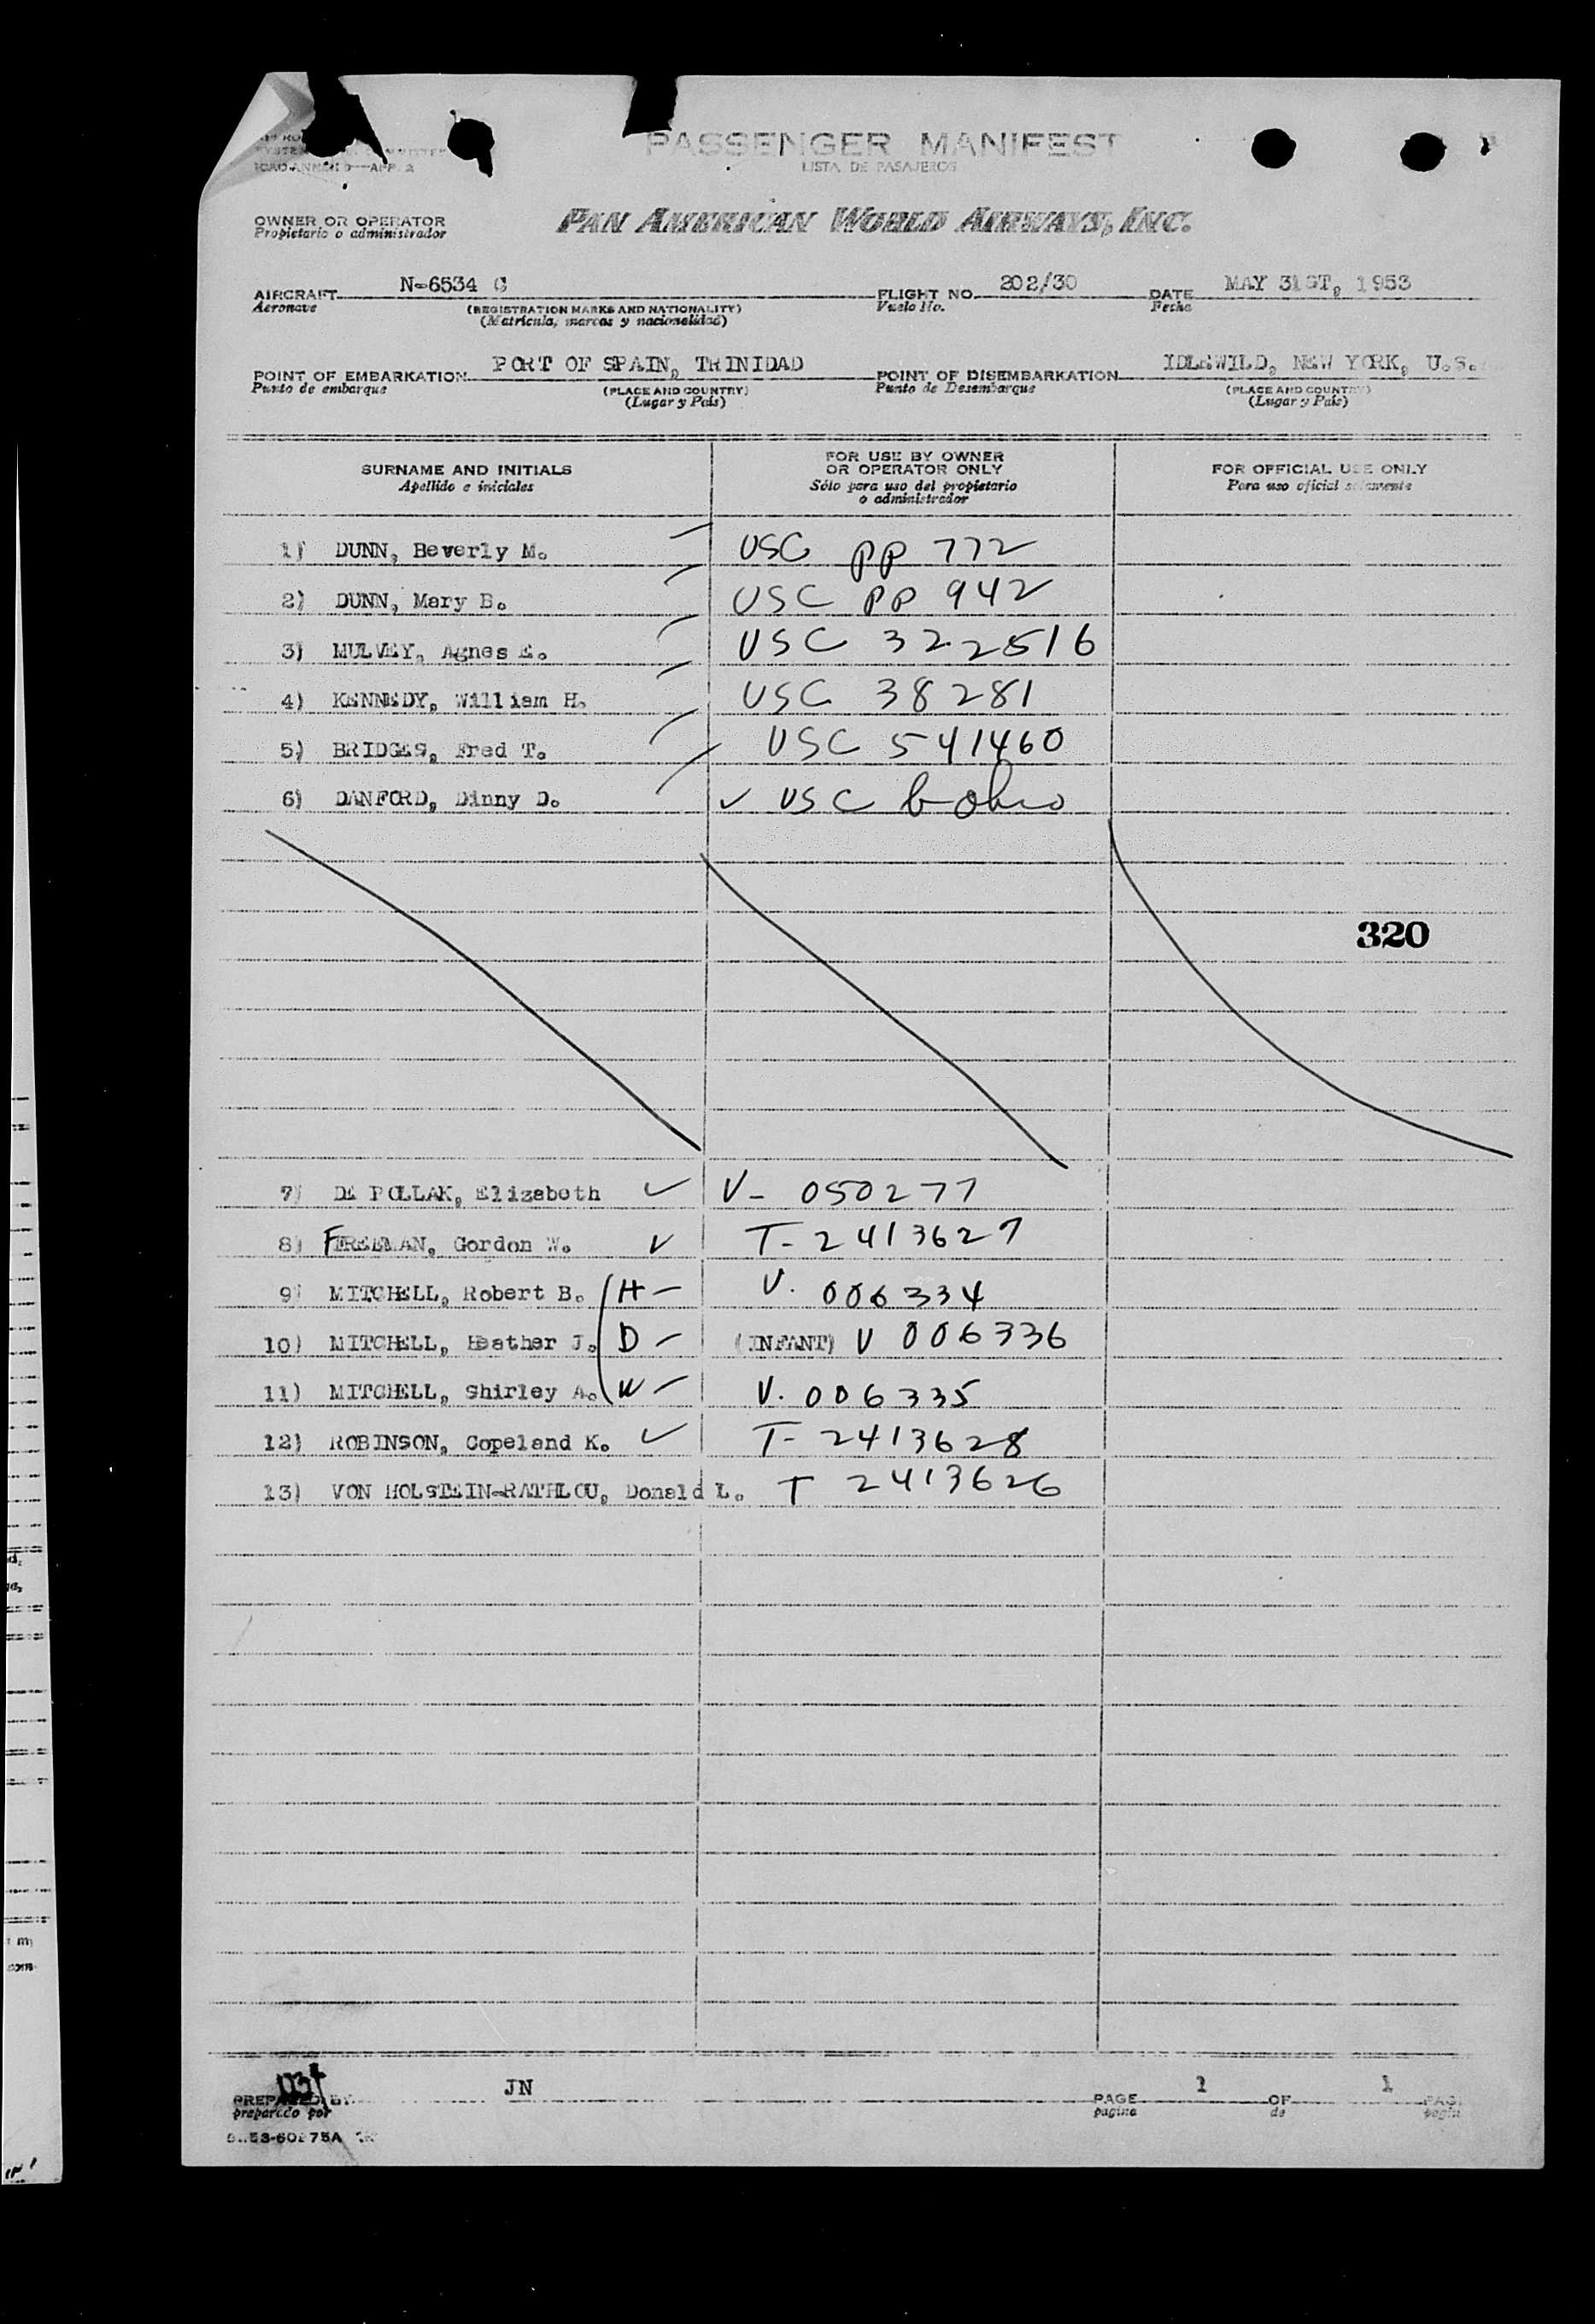 ICAO ANNEX 9—APP. 2
PASSENGER MANIFEST
LISTA DE PASAJEROS
OWNER OR OPERATOR
Propietario o administrador
PAN AMERICAN WORLD AIRWAYS, INC.
AIRCRAFT N-6534 C FLIGHT NO. 202/30 DATE MAY 31ST, 1953
Aeronave (REGISTRATION MARKS AND NATIONALITY) Vuelo No. Fecha
(Matricula, marcas y nacionalidad)
POINT OF EMBARKATION PORT OF SPAIN, TRINIDAD POINT OF DISEMBARKATION IDLEWILD, NEW YORK, U.S.
Punto de embarque (PLACE AND COUNTRY) Punto de Desembarque (PLACE AND COUNTRY)
(Lugar y País) (Lugar y País)
SURNAME AND INITIALS FOR USE BY OWNER OR OPERATOR ONLY FOR OFFICIAL USE ONLY
Apellido e iniciales Sólo para uso del propietario o administrador Para uso oficial solamente
1) DUNN, Beverly M. USC pp 772
2) DUNN, Mary B. USC pp 942
3) MULVEY, Agnes E. USC 322516
4) KENNEDY, William H. USC 38281
5) BRIDGES, Fred T. USC 541460
6) DANFORD, Dinny D. ✓ USC b Ohio
320
7) DE POLLAK, Elizabeth ✓ V- 050277
8) FREEMAN, Gordon W. ✓ T- 2413627
9) MITCHELL, Robert B. H - V. 006334
10) MITCHELL, Heather J. D - (INFANT) V 006336
11) MITCHELL, Shirley A. W - V. 006335
12) ROBINSON, Copeland K. ✓ T- 2413628
13) VON HOLSTEIN-RATHLOU, Donald L. T 2413626
PREPARED BY JN PAGE 1 OF 1
preparado por pagina de